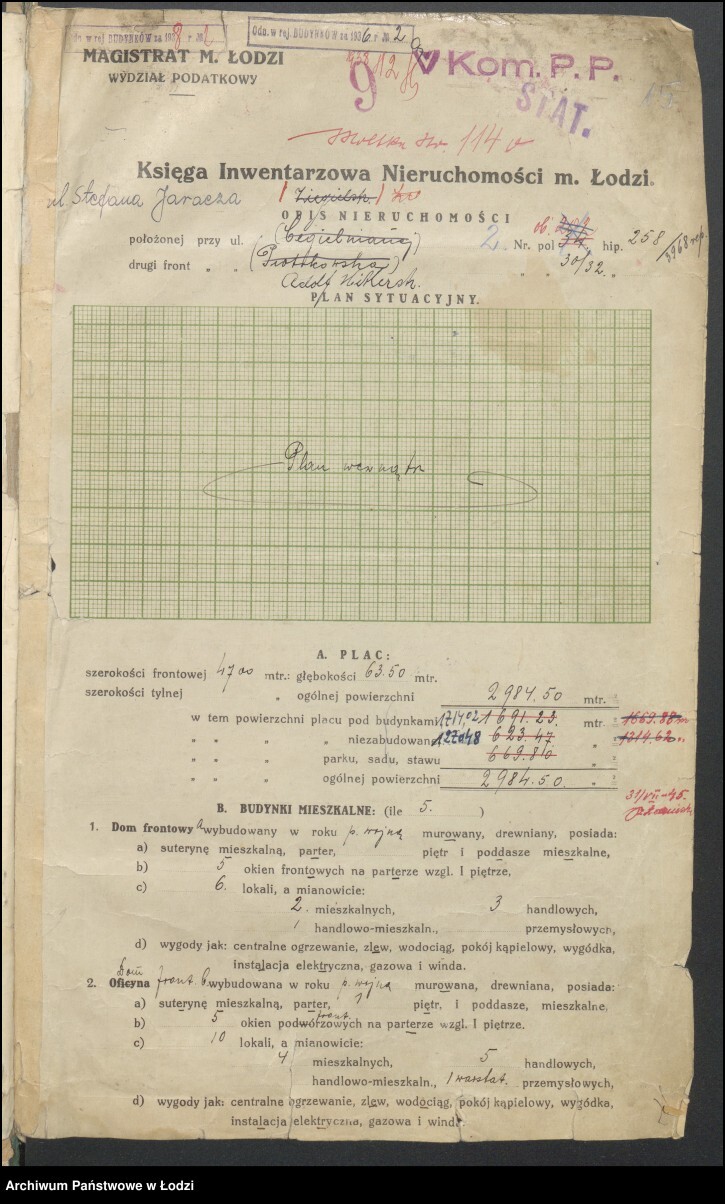 Odn. w rej. BUDYNKÓW za 1936 r. № 2
MAGISTRAT M. ŁODZI
WYDZIAŁ PODATKOWY
Kom. P. P.
STAT.
114
Księga Inwentarzowa Nieruchomości m. Łodzi.
ul. Stefana Jaracza
OPIS NIERUCHOMOŚCI
położonej przy ul. (Cegielnianej) 2 Nr. pol. hip. 258
drugi front „ „ (Piotrkowska) „ 30/32. „
Adolf Hitlerstr.
PLAN SYTUACYJNY.
Plan wewnątrz
A. PLAC:
szerokości frontowej 47.00 mtr.: głębokości 63.50 mtr.
szerokości tylnej „ ogólnej powierzchni 2984,50 mtr.
w tem powierzchni placu pod budynkami 1714,02 1691.23 mtr.
„ „ „ „ niezabudowana 1270.48 623.47 „ 1214.62
„ „ „ parku, sadu, stawu 669.80 „
„ „ „ ogólnej powierzchni 2984.50. „
31/VII-45.
B. BUDYNKI MIESZKALNE: (ile 5. )
1. Dom frontowy a wybudowany w roku p. wojną murowany, drewniany, posiada:
a) suterynę mieszkalną, parter, piętr i poddasze mieszkalne,
b) 5 okien frontowych na parterze wzgl. I piętrze,
c) 6. lokali, a mianowicie:
2. mieszkalnych, 3 handlowych,
1 handlowo-mieszkaln., przemysłowych,
d) wygody jak: centralne ogrzewanie, zlew, wodociąg, pokój kąpielowy, wygódka,
instalacja elektryczna, gazowa i winda.
Dom
2. Oficyna front. b. wybudowana w roku p. wojną murowana, drewniana, posiada:
a) suterynę mieszkalną, parter, 1 piętr. i poddasze, mieszkalne,
front.
b) 5 okien podwórzowych na parterze wzgl. I piętrze.
c) 10 lokali, a mianowicie:
4 mieszkalnych, 5 handlowych,
handlowo-mieszkaln., 1 warsztat. przemysłowych,
d) wygody jak: centralne ogrzewanie, zlew, wodociąg, pokój kąpielowy, wygódka,
instalacja elektryczna, gazowa i winda.
Archiwum Państwowe w Łodzi